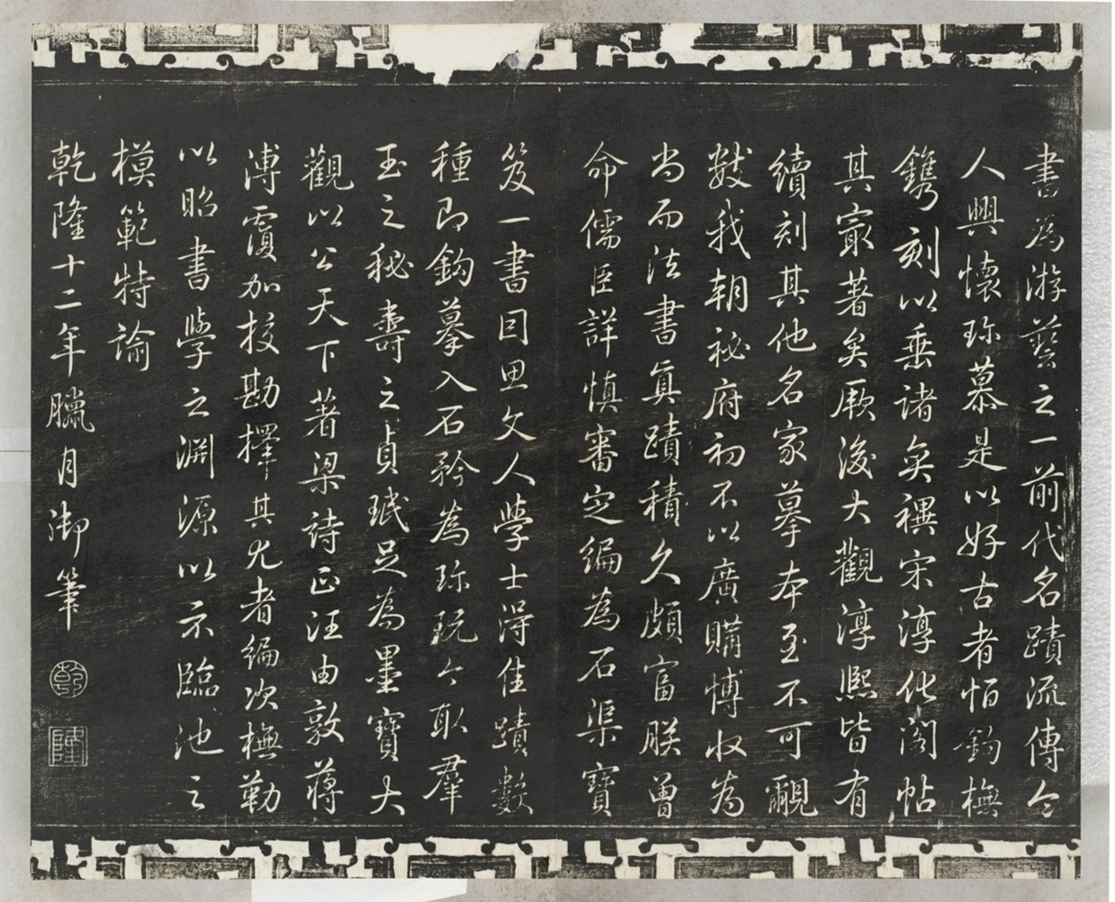 書為游藝之一前代名蹟流傳令
人興懷珎慕是以好古者恒鈎橅
鐫刻以垂諸奕禩宋淳化閣帖
其冣著矣厥後大觀淳熙皆有
續刻其他名家摹本至不可覼
數我朝祕府初不以廣購博收為
尚而法書真蹟積久頗富朕曾
命儒臣詳慎審定編為石渠寶
笈一書因思文人學士得佳蹟數
種即鈎摹入石矜為珎玩今取羣
玉之秘壽之貞珉足為墨寶大
觀以公天下著梁詩正汪由敦蔣
溥覆加挍勘擇其尤者編次橅勒
以昭書學之淵源以示臨池之
模範特諭
乾隆十二年臘月御筆
乾
隆